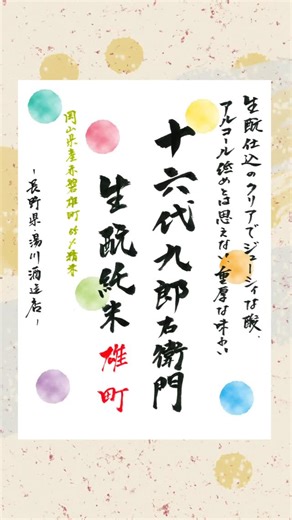 生酛仕込のクリアでジューシィな酸、
アルコール低めとは思えない、重厚な味わい
十六代九郎右衛門
生酛純米 雄町
岡山県産赤磐雄町
～長野県・湯川酒造店～